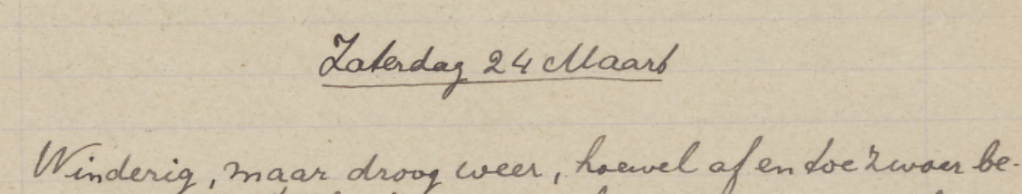 Zaterdag 24 Maart
Winderig, maar droog weer, hoewel af en toe zwaar be-